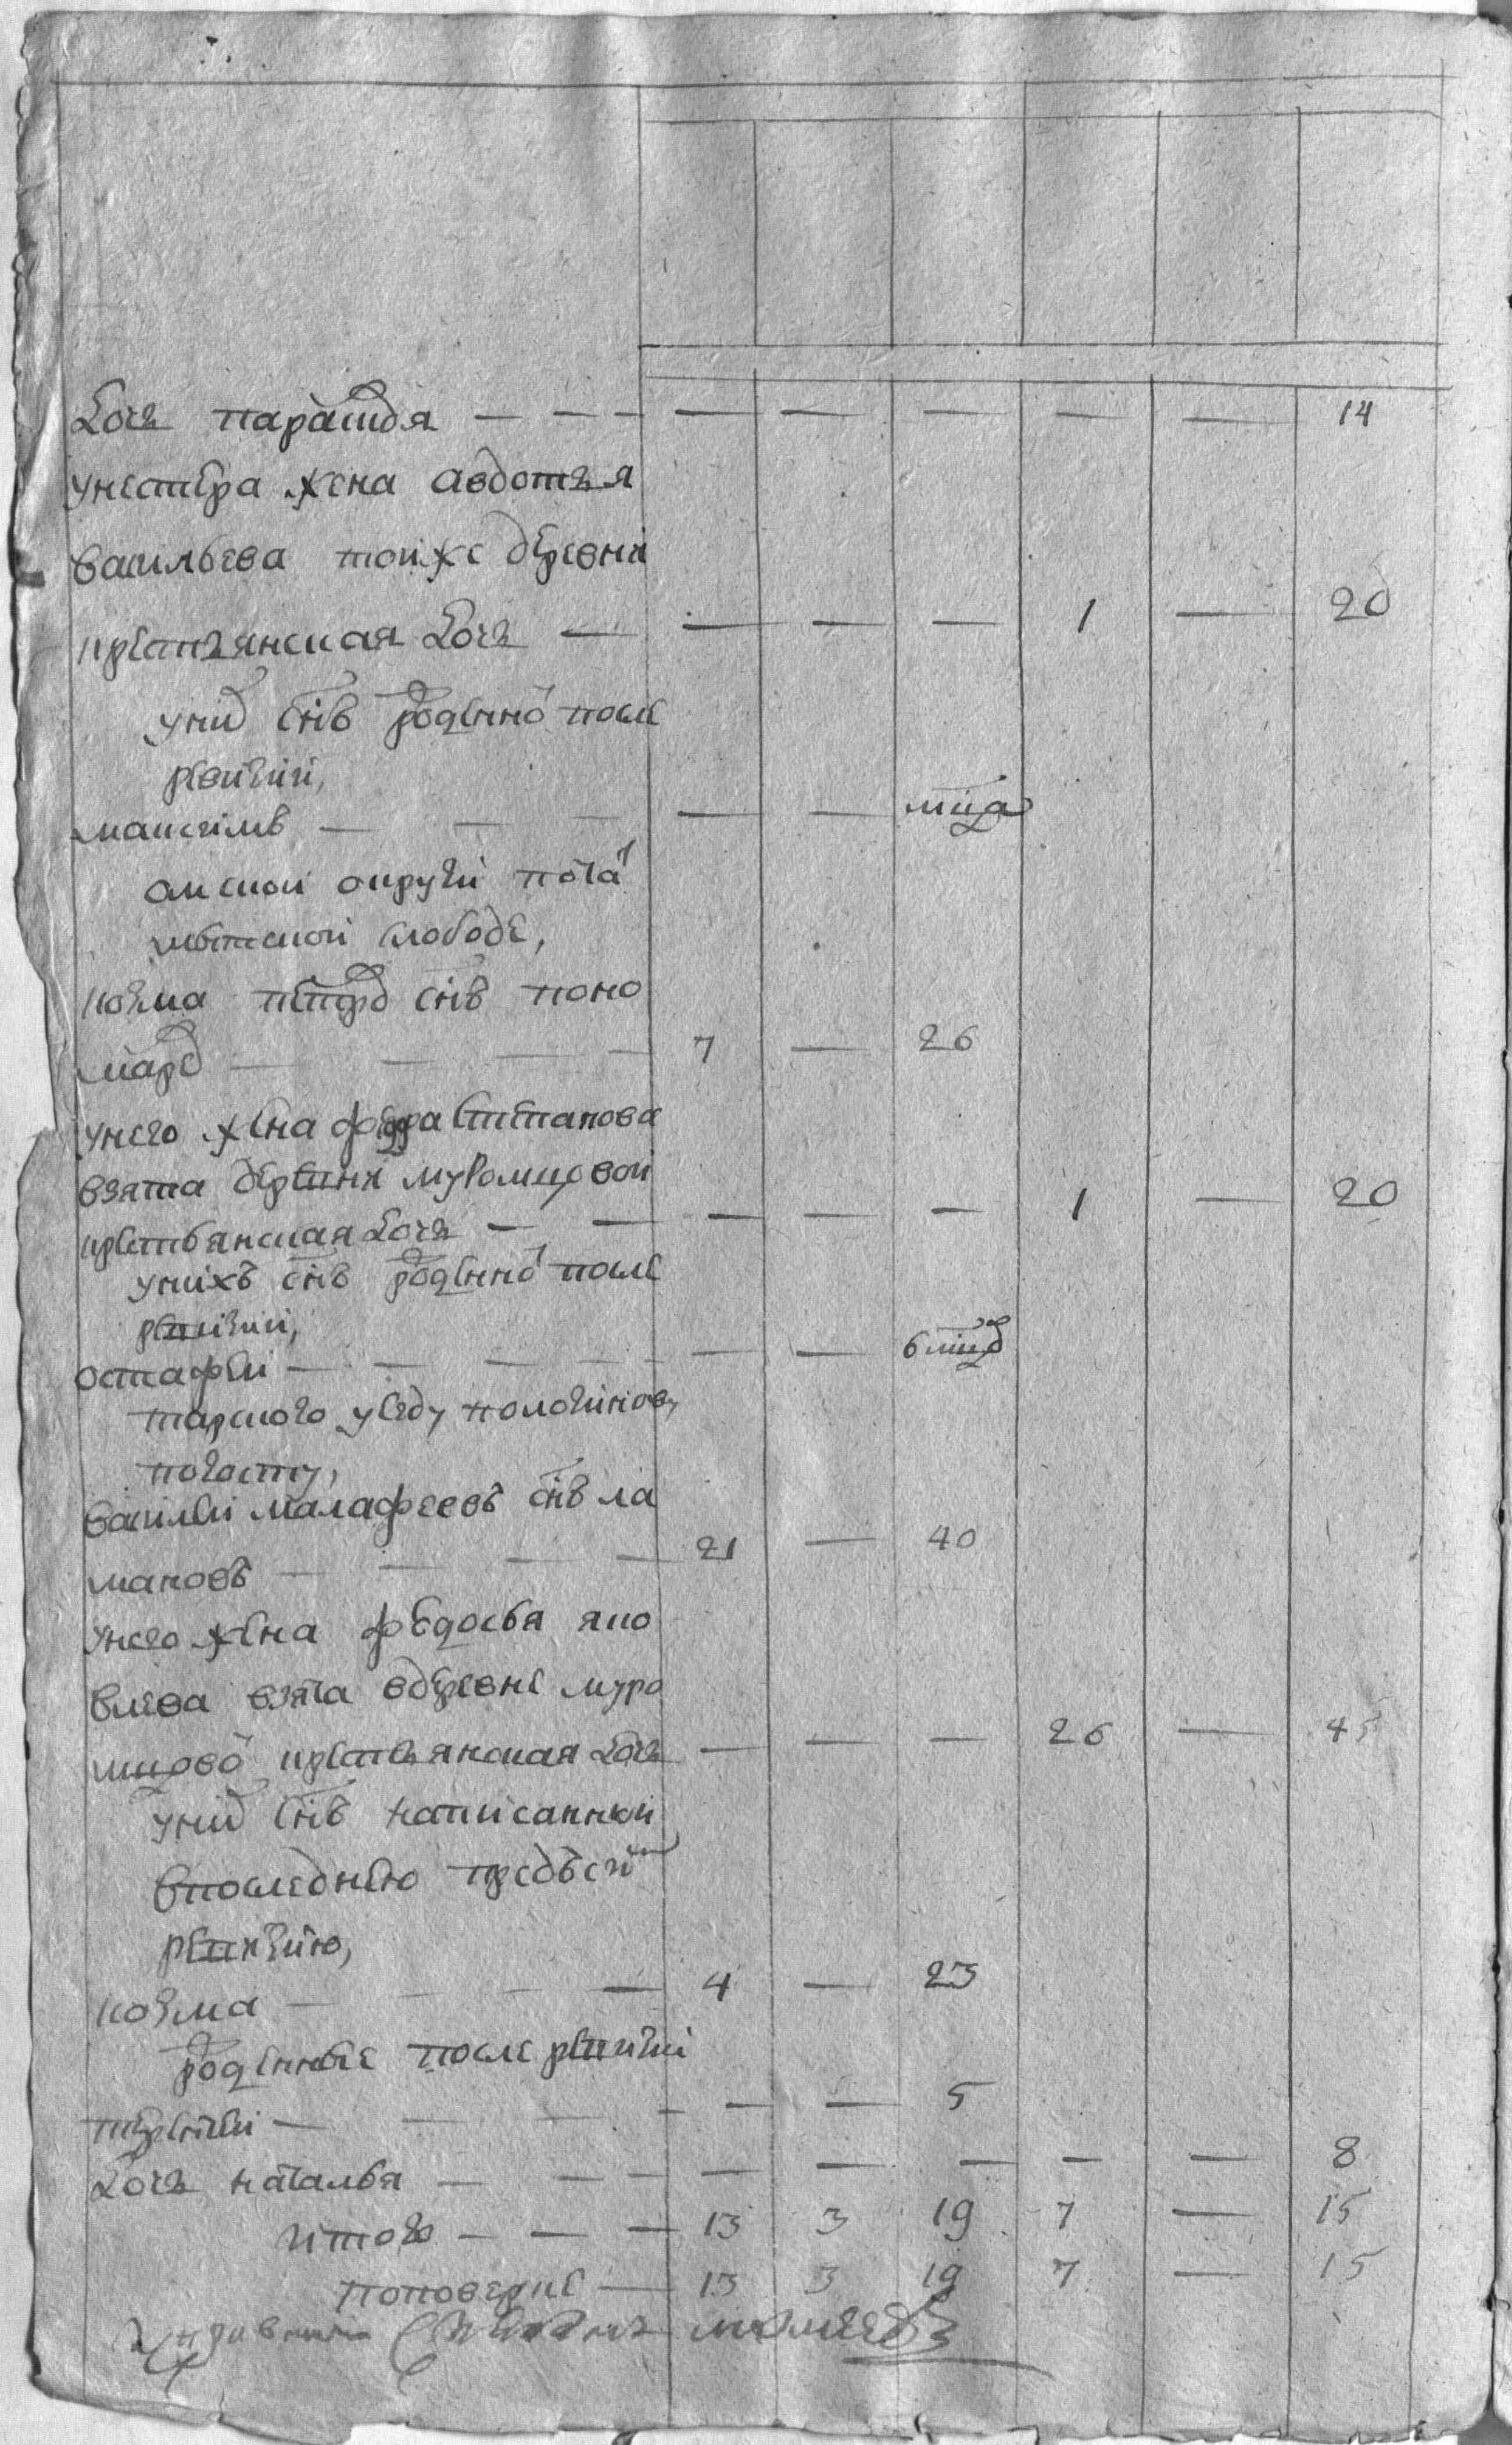 Дочь парасковя — — — — — — — — 14
унестера жена авдотья
васильева тойже деревни
крестьянская дочь — — — — 1 — 20
уних снъ рожденной после
ревизии,
максимъ — — — — — мца
омской округи пота
мъшской слободе,
козма петров снъ поно
марев — — — — 7 — 26
унего жена федора степанова
взята деревни муромцовой
крестьянская дочь — — — — — 1 — 20
унихъ снъ рожденной после
ревизии,
остафей — — — — — — 6 мцов
тарского уезду
погосту,
василей малафеевъ снъ ла
мановъ — — — — 21 — 40
унего жена федосья яко
влева взята вдеревне муро
мцовой крестьянская дочь — — — 26 — 45
уних снъ написанной
впоследнею предъ сей
ревизию,
козма — — — — 4 — 23
рожденные после ревизии
терентей — — — — — — 5
дочь наталья — — — — — — — — 8
итого — — — 13 3 19 7 — 15
поповерке — 13 3 19 7 — 15